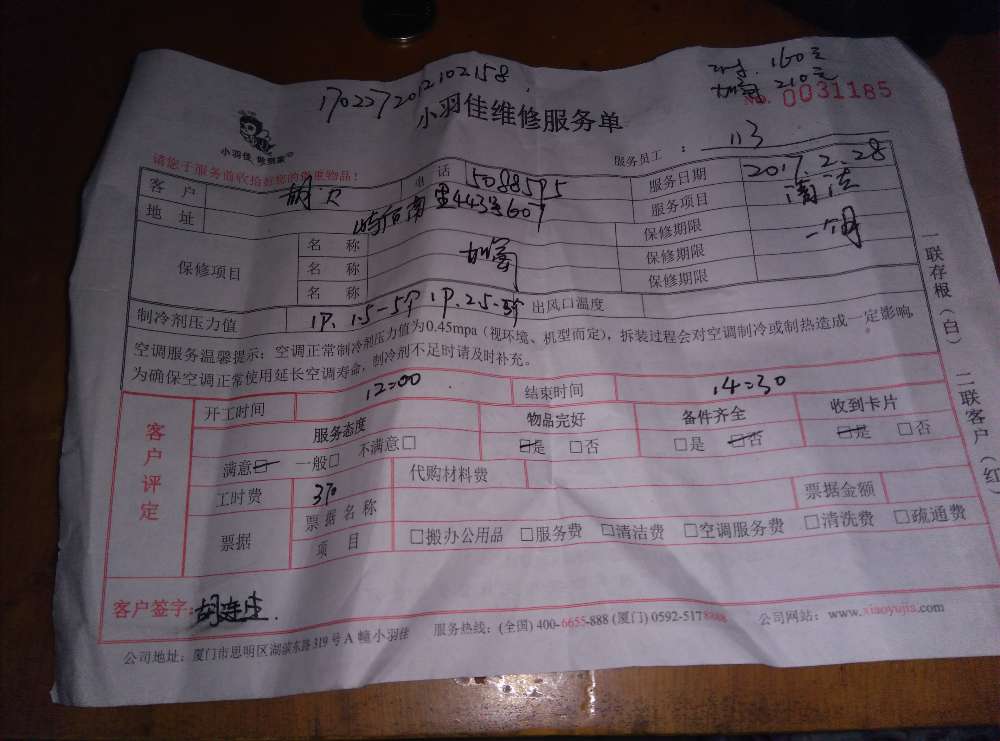 1702272012102158
160元
210元
No. 0031185
小羽佳维修服务单
小羽佳 做到家
服务员工 : 113
请您于服务前收拾好您的贵重物品!
客 户 胡 电 话 5088595 服务日期 2017.2.28
地 址 南里443号607 服务项目 清洁
保修项目
名 称 加氟 保修期限 一个月
名 称 保修期限
名 称 保修期限
制冷剂压力值 1P. 1.5-5个 1P. 2.5- 出风口温度
空调服务温馨提示:空调正常制冷剂压力值为0.45mpa(视环境、机型而定),拆装过程会对空调制冷或制热造成一定影响,
为确保空调正常使用延长空调寿命,制冷剂不足时请及时补充。
客户评定
开工时间 12=00 结束时间 14=30
服务态度 物品完好 备件齐全 收到卡片
满意☑ 一般□ 不满意□ ☑是 □否 □是 ☑否 ☑是 □否
工时费 370 代购材料费
票据 票据名称 票据金额
项 目 □搬办公用品 □服务费 □清洁费 □空调服务费 □清洗费 □疏通费
客户签字:胡连生.
公司地址:厦门市思明区湖滨东路319号A幢小羽佳 服务热线:(全国) 400-6655-888 (厦门) 0592-5178888 公司网站:www.xiaoyujia.com
一联存根(白) 二联客户(红)